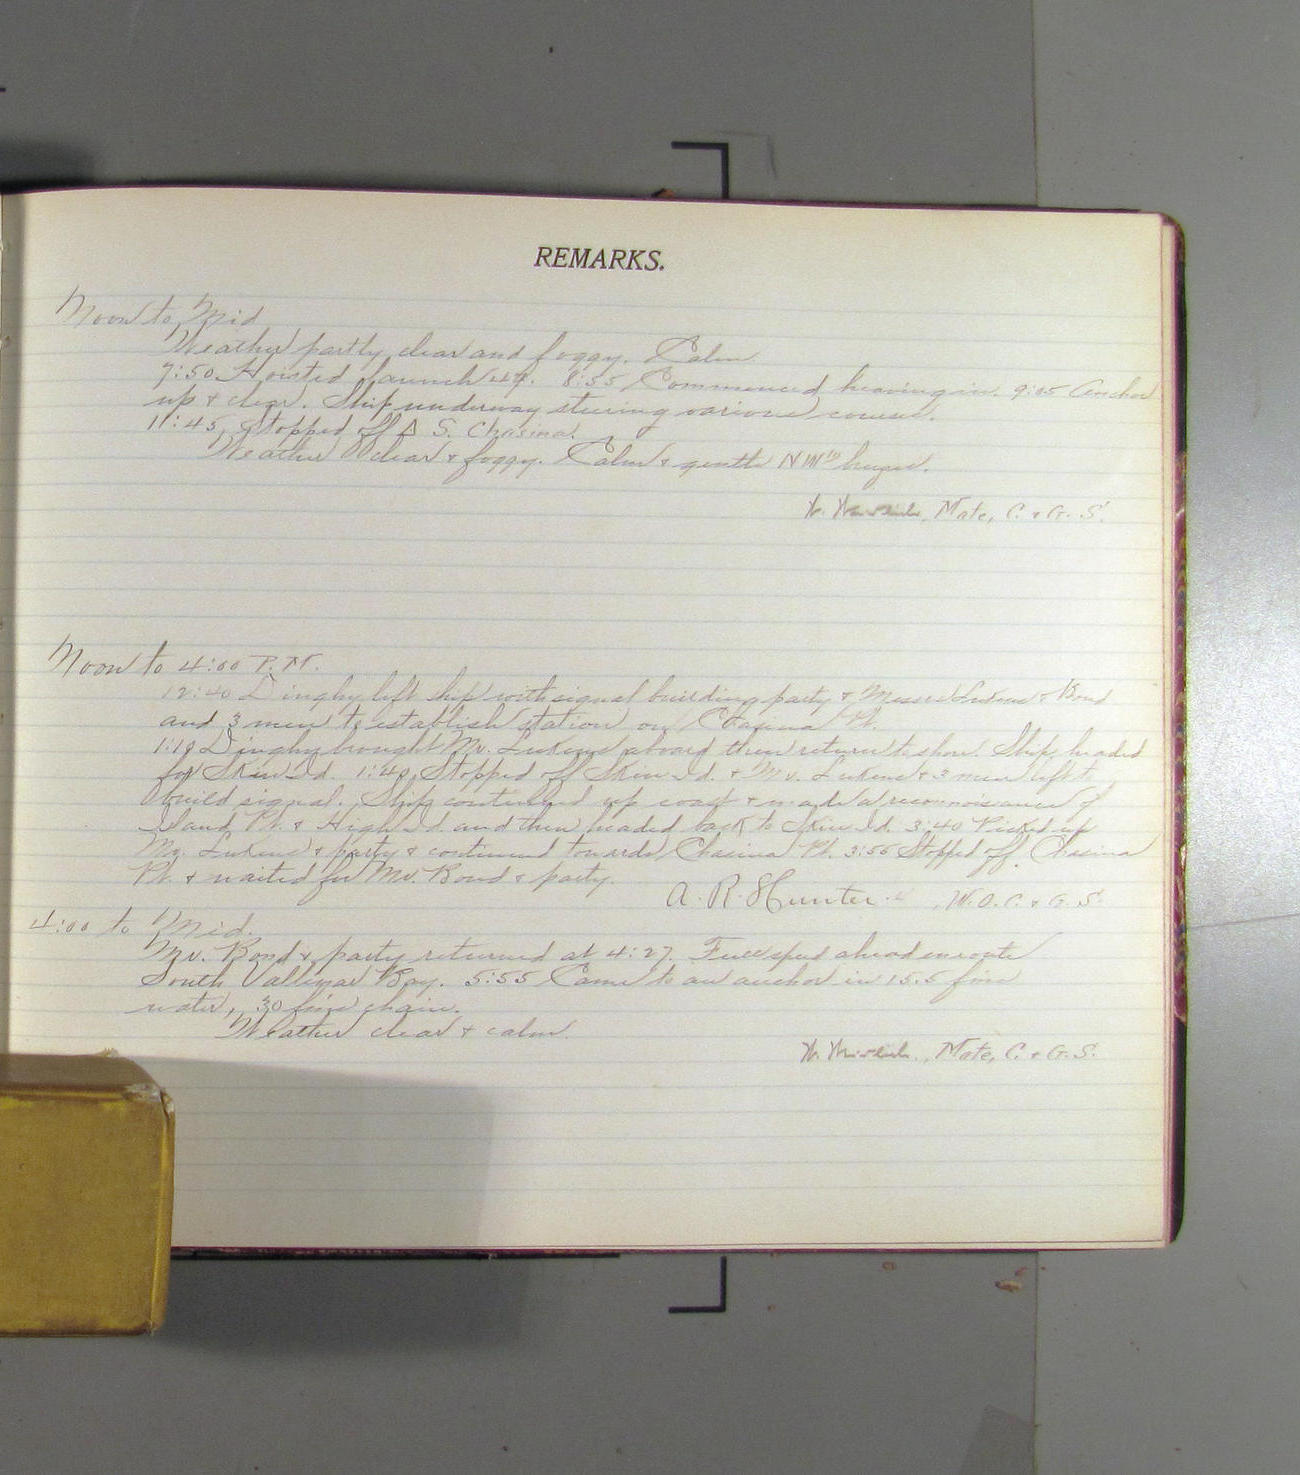 REMARKS.
Noon to Mid
Weather partly clear and foggy. Calm
7:50 Hoisted launch 8:55 Commenced heaving in. 9:05 Anchor
up & clear. Ship underway steering various courses.
11:45, Stopped off △ S. Chasina.
Weather clear & foggy. Calm & gentle NW'ly
W. Mate, C. & G. S.
Noon to 4:00 P.M.
12:40 Dinghy left ship with signal building party & Messrs Lukens & Bond
and 3 men to establish station on Chasina Pt.
1:10 Dinghy brought Mr. Lukens aboard then returned to shore. Ship headed
for Skin Id. 1:40, Stopped off Skin Id. & Mr. Lukens & 3 men left to
build signal. Ship continued up coast & made a reconnoisance of
Island Pt. & High Id. and then headed back to Skin Id. 3:40 Picked up
Mr. Lukens & party & continued towards Chasina Pt. 3:55 Stopped off Chasina
Pt. & waited for Mr. Bond & party.
A. R. Hunter W.O. C. & G. S.
4:00 to Mid.
Mr. Bond & party returned at 4:27. Full speed ahead enroute
South Vallinar Bay. 5:55 Came to an anchor in 15.5 fms
water, 30 fms chain.
Weather clear & calm.
W. Mate, C. & G. S.